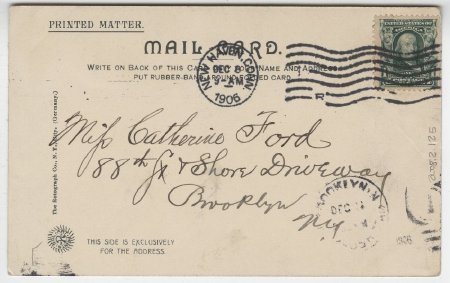 PRINTED MATTER.
MAIL CARD.
WRITE ON BACK OF THIS CARD YOUR NAME AND ADDRESS
PUT RUBBER-BAND AROUND FOLDED CARD
NEW HAVEN, CONN
DEC 
1906
Miss Catherine Ford
88th St & Shore Driveway
Brooklyn
Ny.
BROOKLYN, N.Y.
DEC
1906
The Rotograph Co., N. Y. (Germany.)
THIS SIDE IS EXCLUSIVELY
FOR THE ADDRESS.